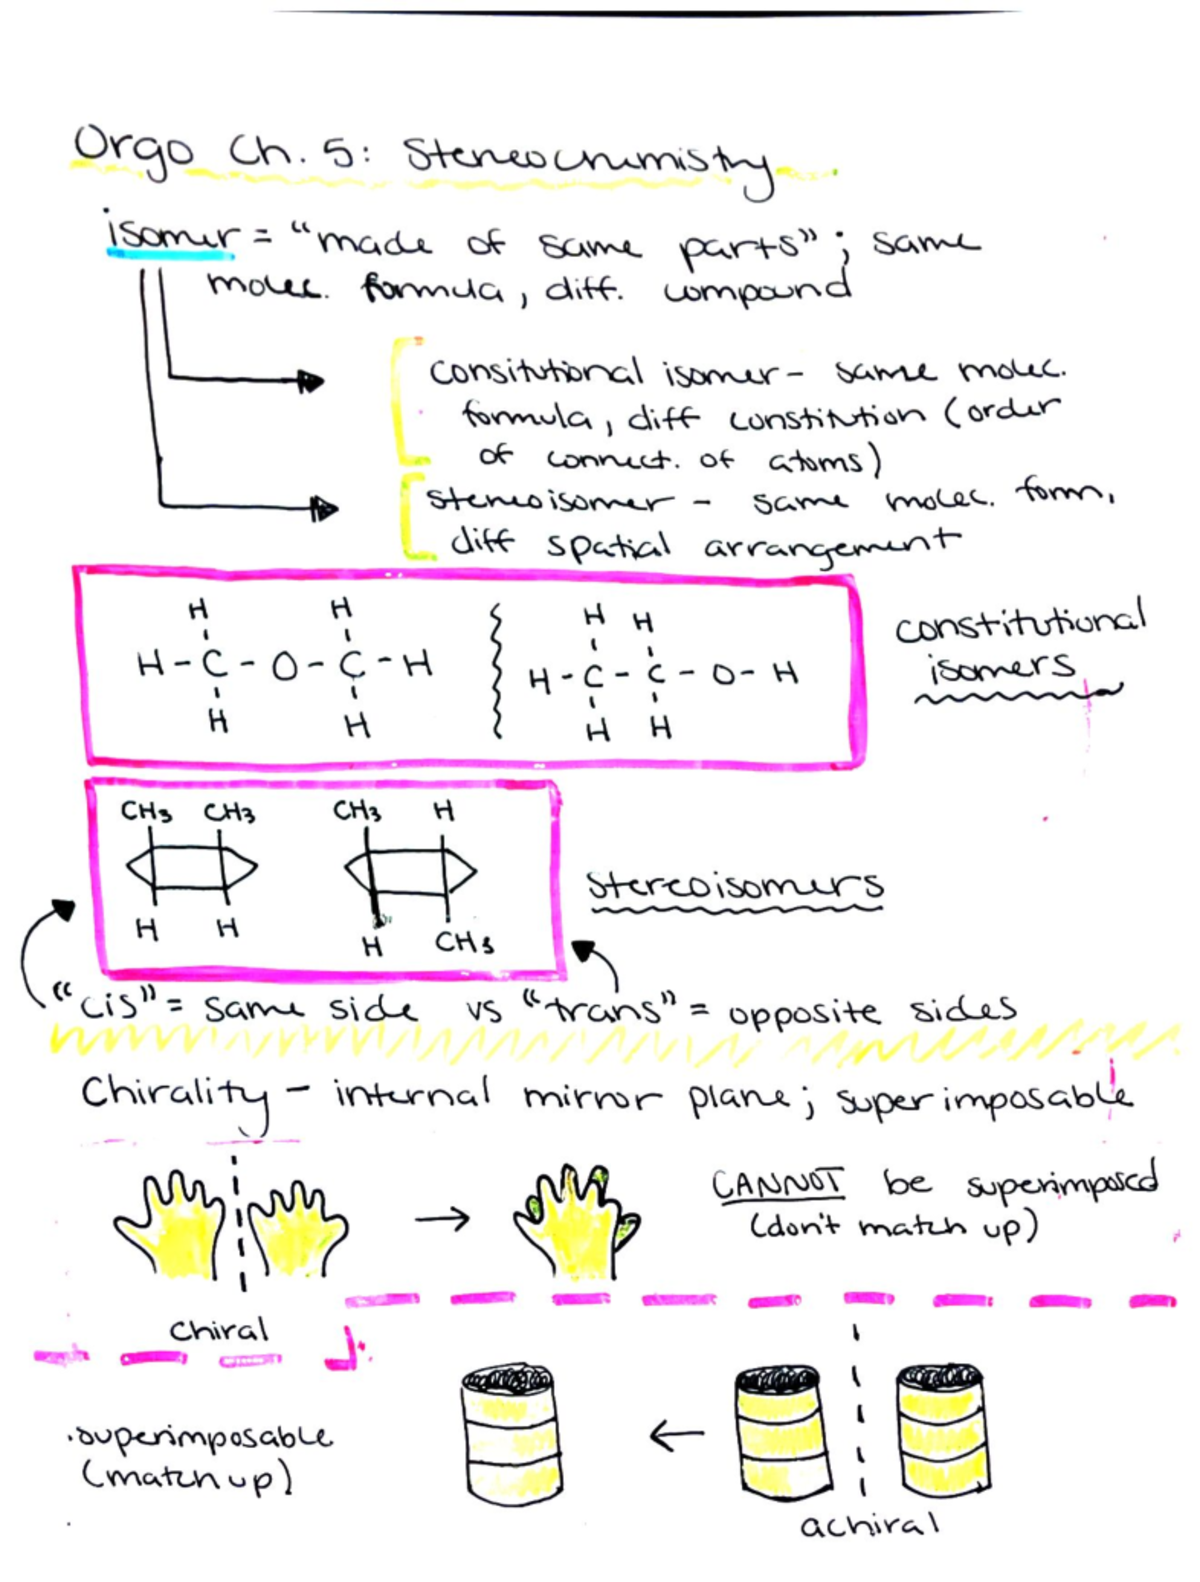 Orgo Ch. 5: Stereochemistry
isomer = "made of same parts"; same
molec. formula, diff. compound
consitutional isomer - same molec.
formula, diff constitution (order
of connect. of atoms)
stereoisomer - same molec. form,
diff spatial arrangement
H H H H
H-C-O-C-H H-C-C-O-H
H H H H
constitutional
isomers
CH3 CH3 CH3 H
H H H CH3
stereoisomers
"cis" = same side vs "trans" = opposite sides
Chirality - internal mirror plane; superimposable
CANNOT be superimposed
(don't match up)
chiral
superimposable
(match up)
achiral